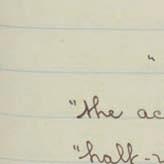 "
"the ac
"half-